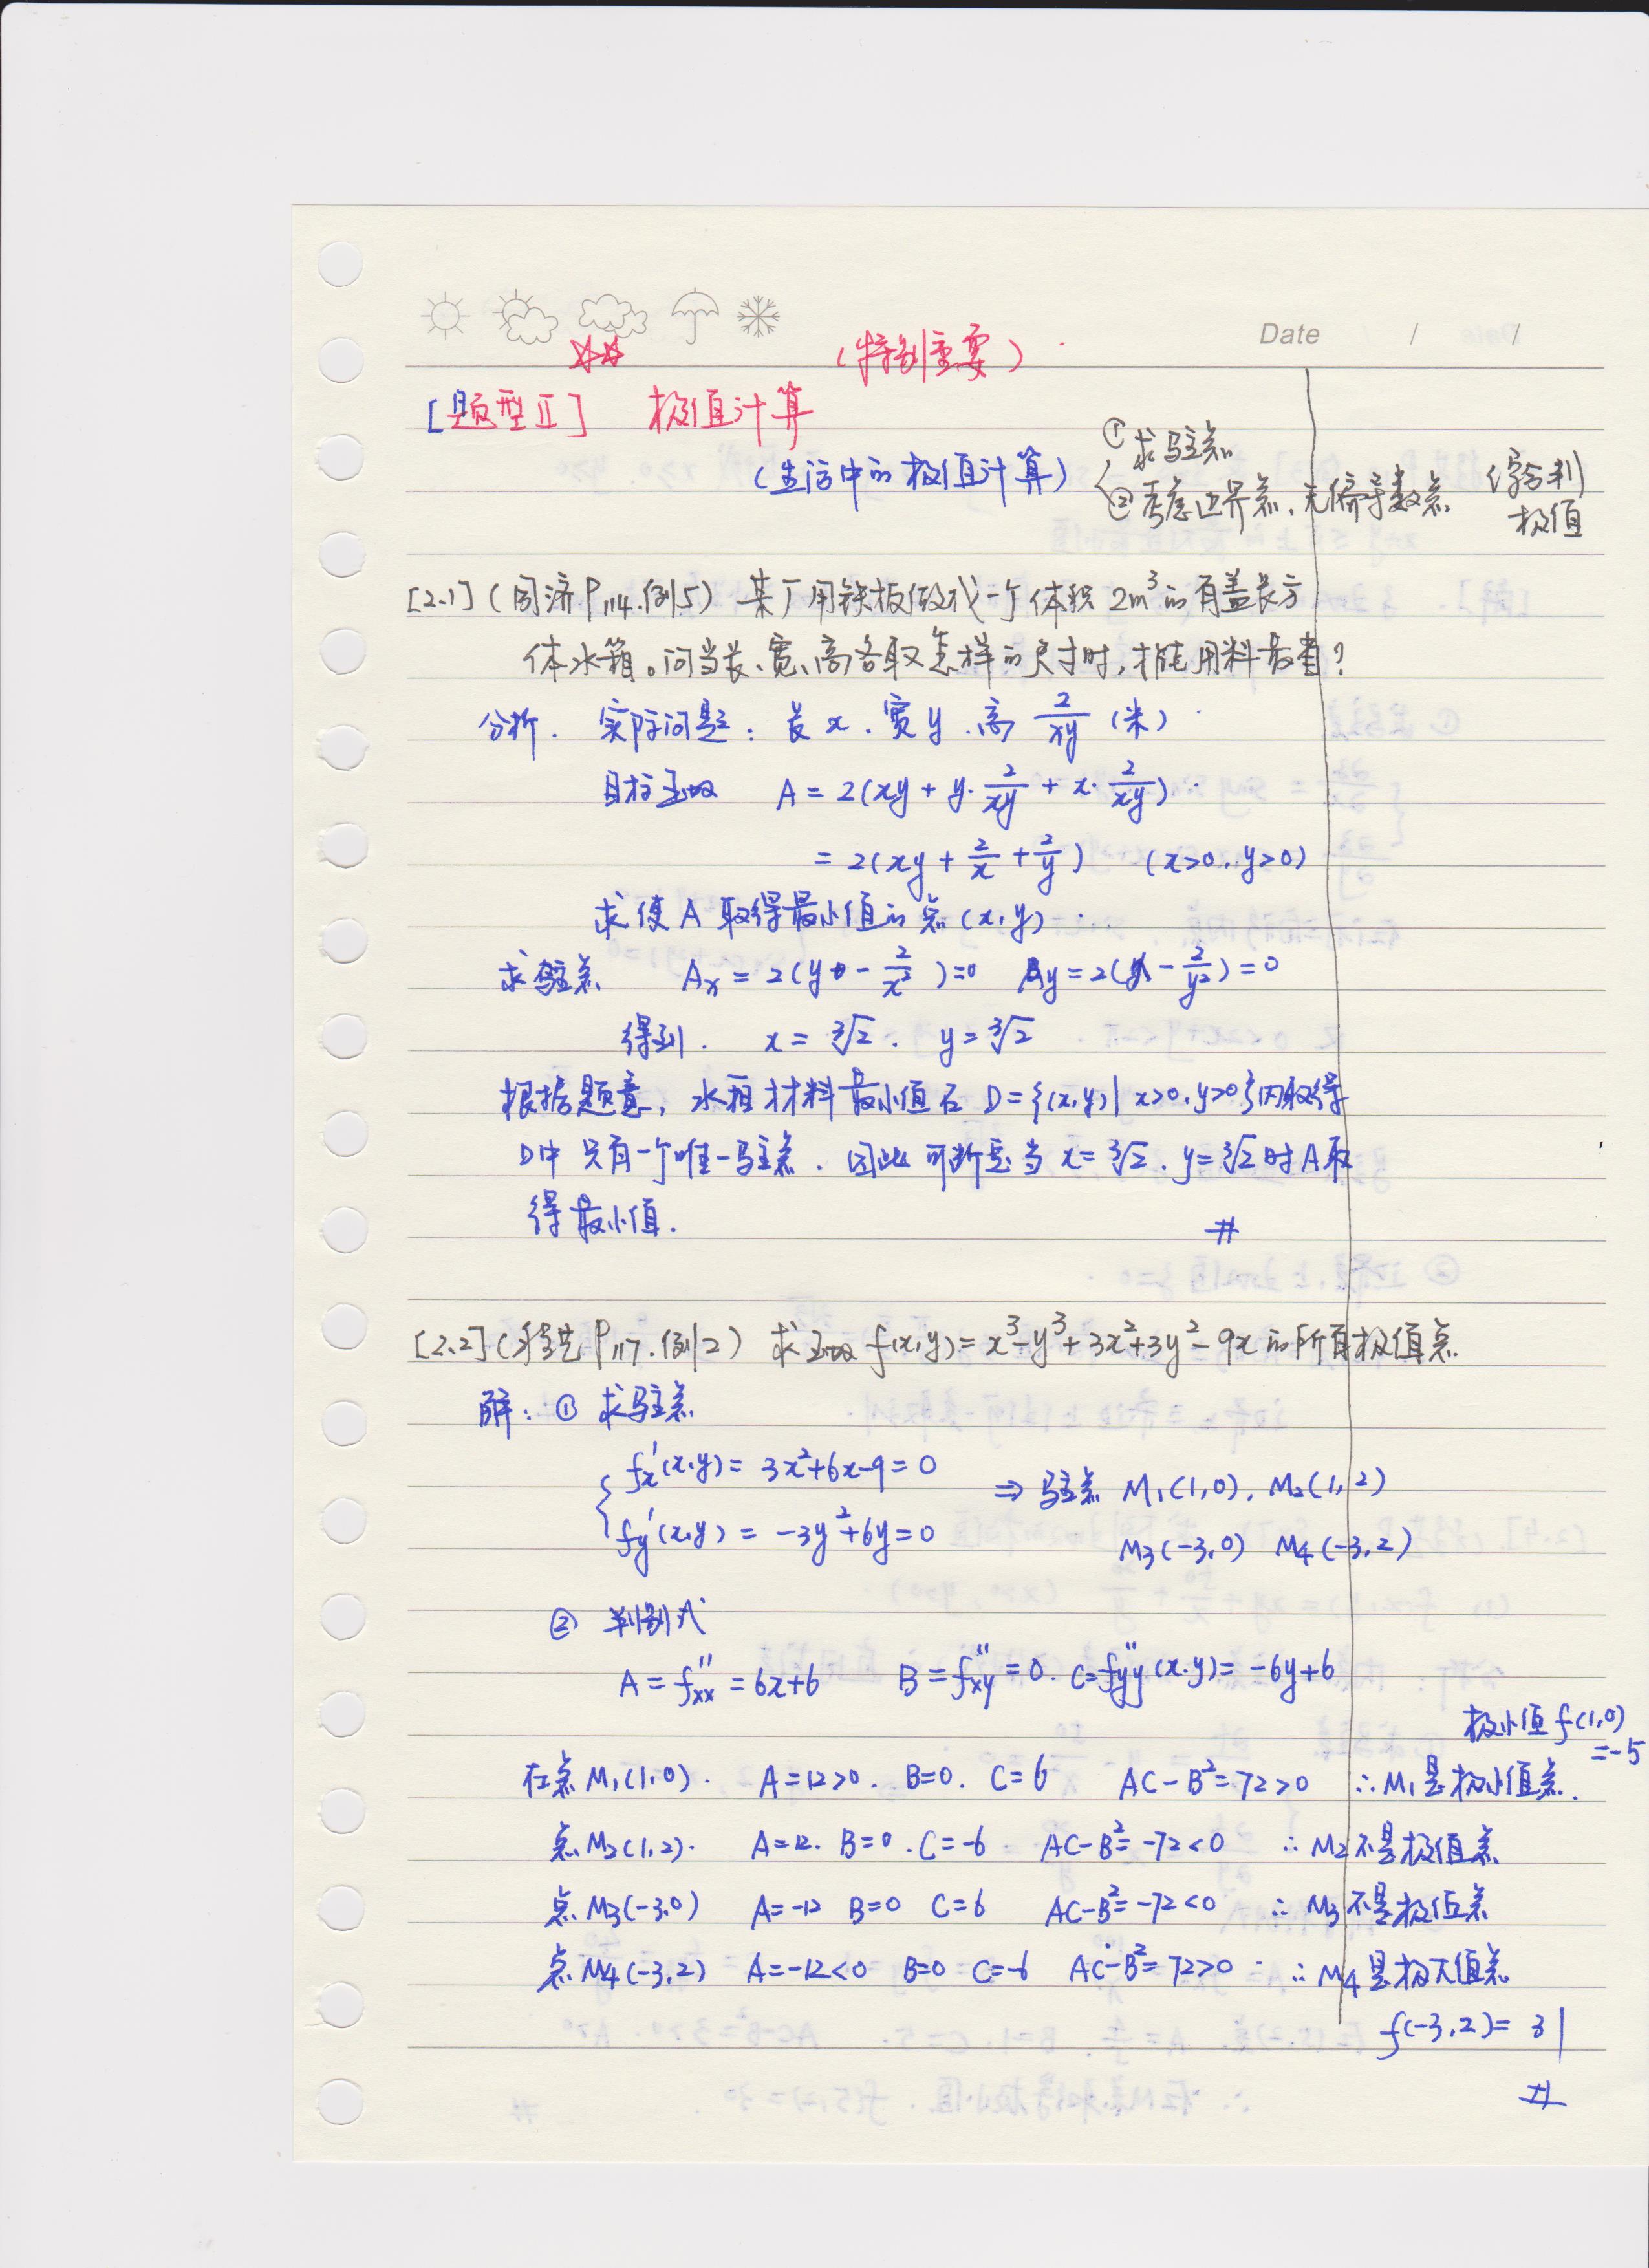 Date / /
(特别重要)
[题型Ⅱ] 极值计算
(生活中的极值计算) ① 求驻点
② 考虑边界点、无偏导数点 (综合判
极值
[2.1] (同济P114.例5) 某厂用铁板做成一个体积2m³的有盖长方
体水箱。问当长、宽、高各取怎样的尺寸时,才能用料最省?
分析. 实际问题: 长x.宽y.高 2/xy (米)
目标函数 A = 2(xy + y·2/xy + x·2/xy)
= 2(xy + 2/x + 2/y) (x>0, y>0)
求使A取得最小值的点(x,y).
求驻点 Ax = 2(y - 2/x²)=0 Ay = 2(x - 2/y²)=0
得到. x = ∛2. y = ∛2
根据题意, 水箱材料最小值在 D={(x,y)| x>0,y>0}内取得
D中只有一个唯一驻点. 因此可断定当 x=∛2. y=∛2时A取
得最小值. #
[2.2] (P117.例2) 求函数 f(x,y)=x³-y³+3x²+3y²-9x的所有极值点
解: ① 求驻点
fx'(x,y) = 3x²+6x-9=0 ⇒ 驻点 M₁(1,0), M₂(1,2)
fy'(x,y) = -3y²+6y=0 M₃(-3,0) M₄(-3,2)
② 判别式
A = fxx'' = 6x+6 B = fxy'' = 0. C=fyy''(x,y)= -6y+6
极小值 f(1,0)
=-5
在点M₁(1,0). A=12>0. B=0. C=6 AC-B²=72>0 ∴M₁是极小值点.
点M₂(1,2). A=12. B=0. C=-6 AC-B²=-72<0 ∴M₂不是极值点
点M₃(-3,0) A=-12 B=0 C=6 AC-B²=-72<0 ∴M₃不是极值点
点M₄(-3,2) A=-12<0 B=0 C=-6 AC-B²=72>0 ∴M₄是极大值点
f(-3,2)= 31
#